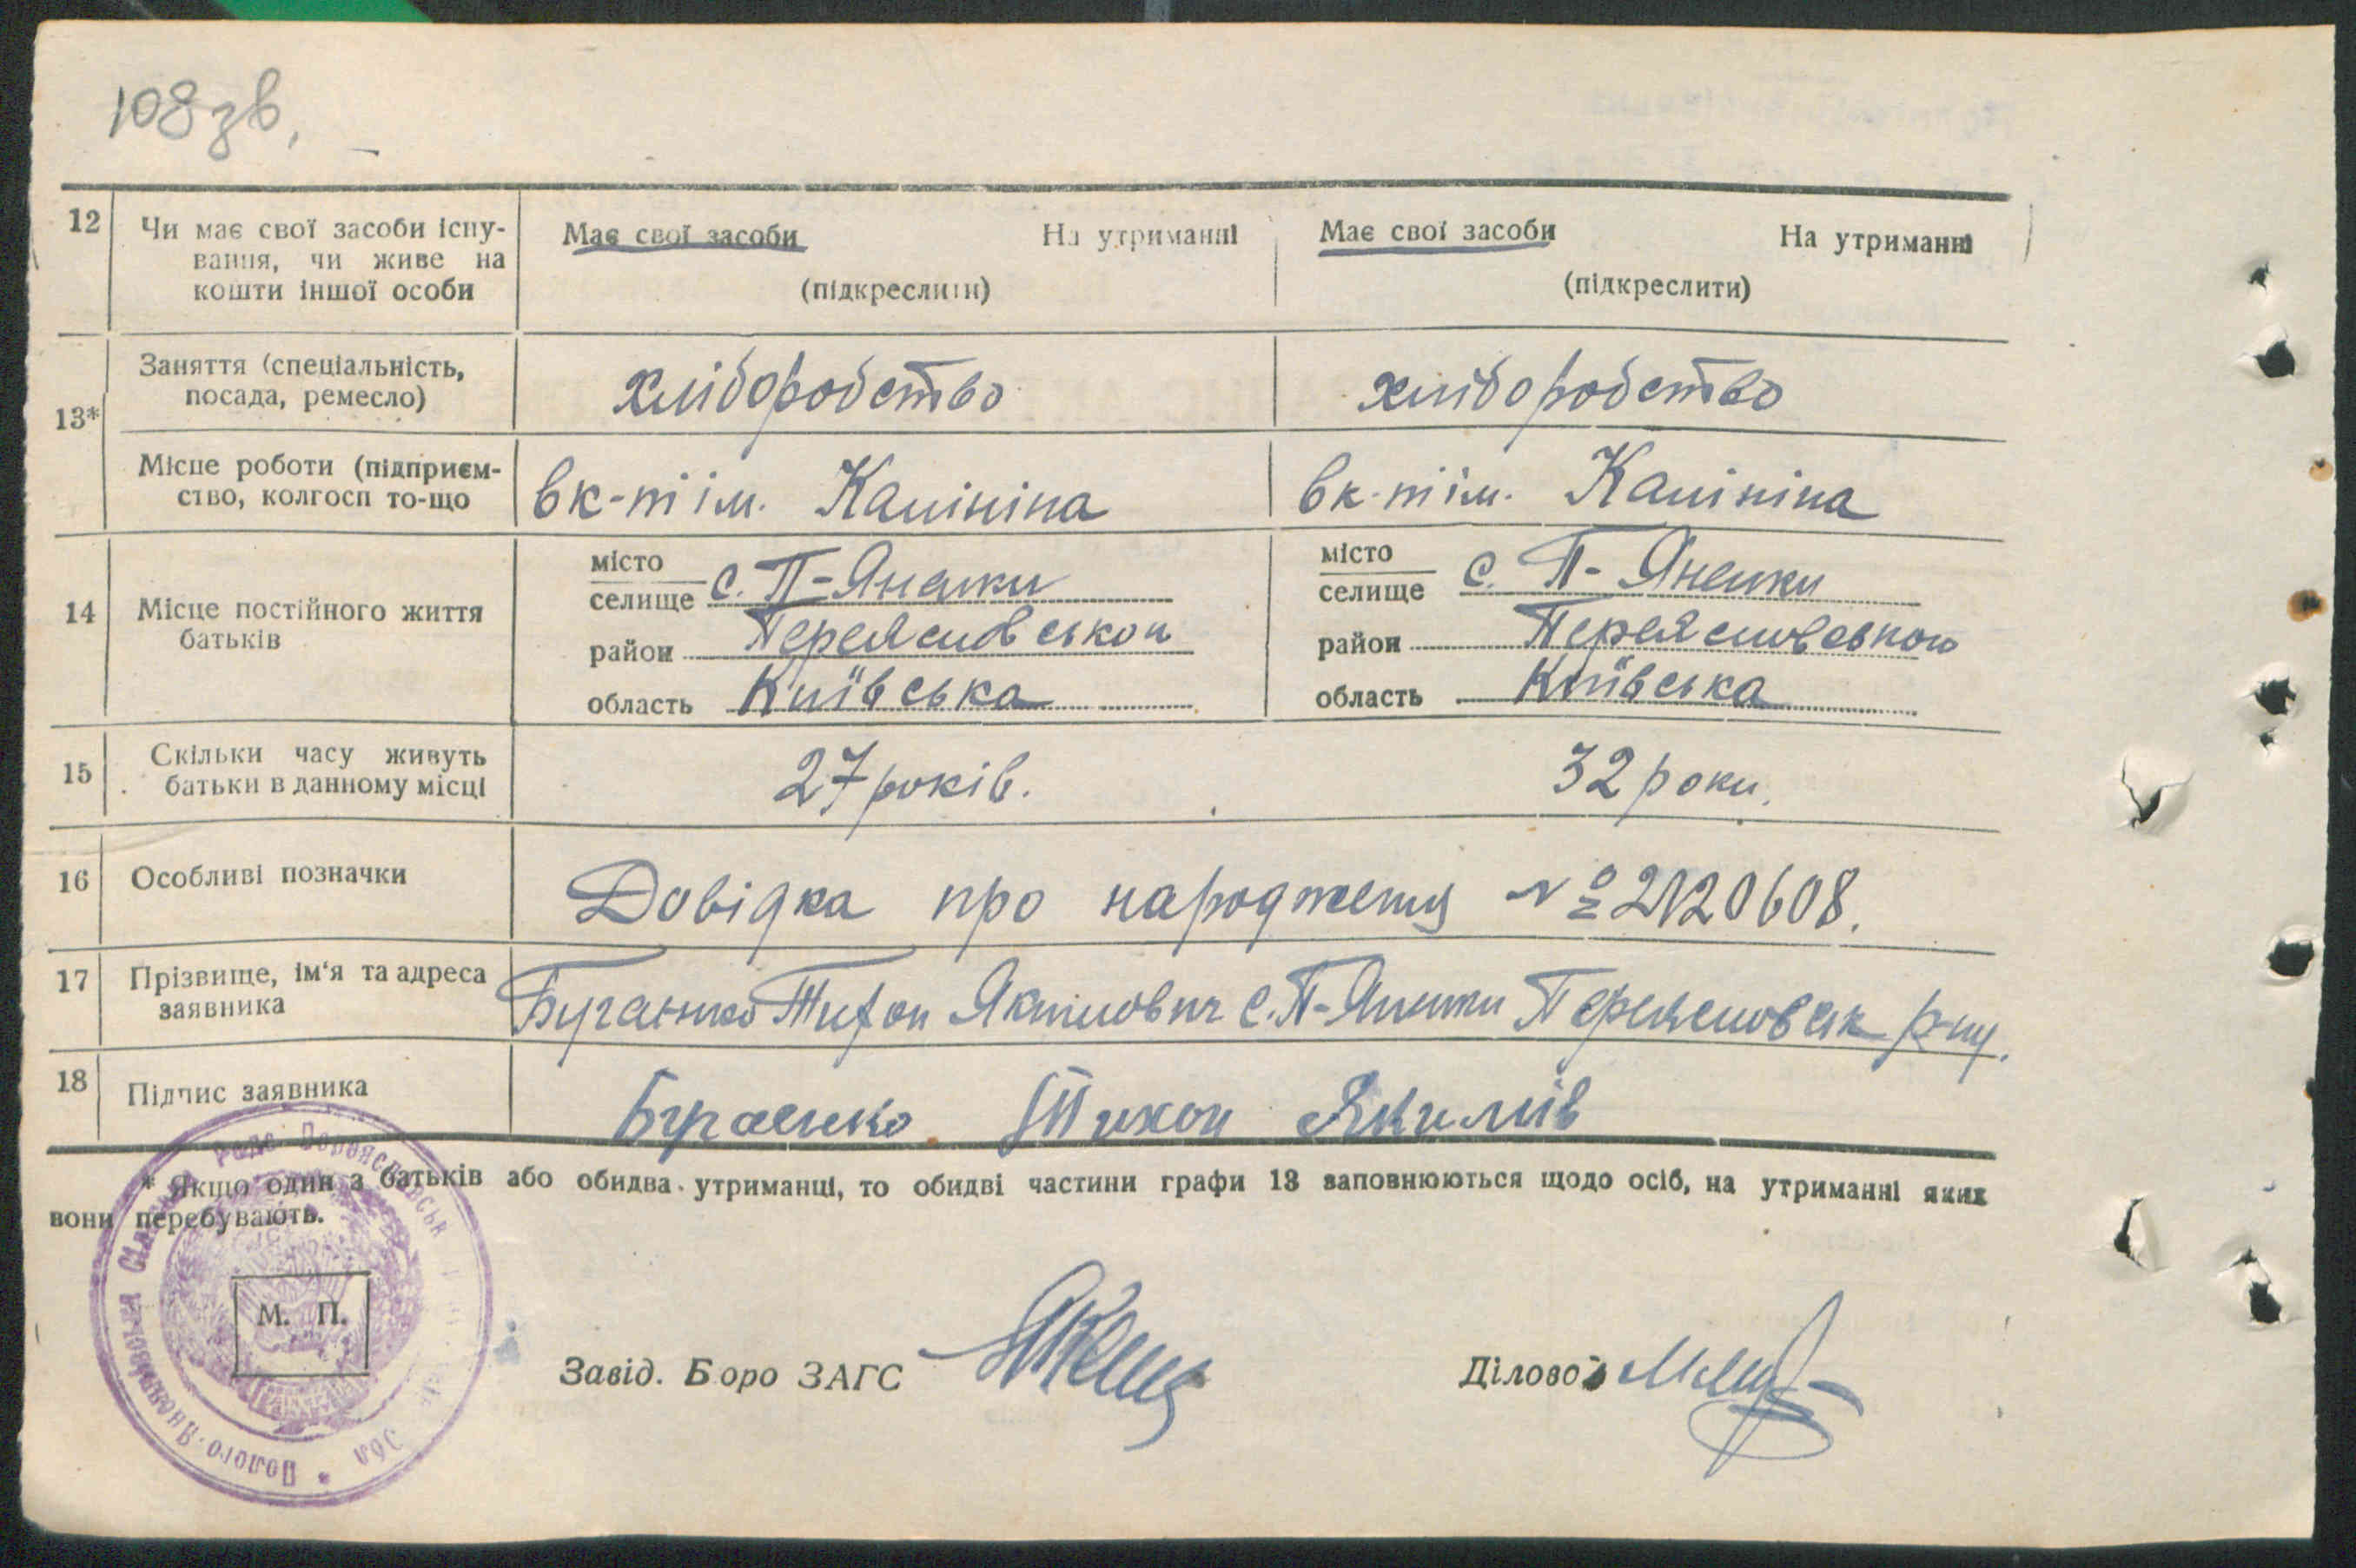 108 зв.
12 Чи має свої засоби існу-
вання, чи живе на
кошти іншої особи
Має свої засоби На утриманні
(підкреслити)
Має свої засоби На утриманні
(підкреслити)
13*
Заняття (спеціальність,
посада, ремесло)
хліборобство
хліборобство
Місце роботи (підприєм-
ство, колгосп то-що
в к-ті ім. Калініна
в к-ті ім. Калініна
14 Місце постійного життя
батьків
місто
селище с. П-Яненки
район Переяславської
область Київська
місто
селище с. П-Яненки
район Переяславської
область Київська
15 Скільки часу живуть
батьки в данному місці
27 років.
32 роки.
16 Особливі позначки
Довідка про народження № 2120608.
17 Прізвище, ім'я та адреса
заявника
Тихон Якимович с. П-Яненки Переяславськ р-ну.
18 Підпис заявника
Тихон Якимів
* Якщо один з батьків або обидва утриманці, то обидві частини графи 13 заповнюються щодо осіб, на утриманні яких
вони перебувають.
М. П.
Завід. Боро ЗАГС
Діловод